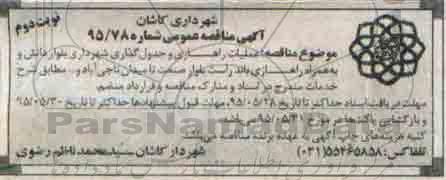 نوبت دوم
شهرداری کاشان
آگهی مناقصه عمومی شماره ۹۵/۷۸
موضوع مناقصه: عملیات راهسازی و جدول گذاری شهرداری بلوار دانش و
به همراه راهسازی باند راست بلوار صنعت تا میدان ناجی آباد و.. مطابق شرح
خدمات مندرج در اسناد و مدارک مناقصه و قرارداد منضم.
مهلت دریافت اسناد حداکثر تا تاریخ ۹۵/۰۵/۲۸، مهلت قبول پیشنهادها حداکثر تا تاریخ ۹۵/۰۵/۳۰
و بازگشایی پاکتها در مورخ ۹۵/۰۵/۳۱ می باشد.
کلیه هزینه های چاپ آگهی به عهده برنده مناقصه می باشد.
تلفاکس: ۵۵۴۶۵۸۵۸(۰۳۱)
شهردار کاشان سید محمد ناظم رضوی
ParsNama